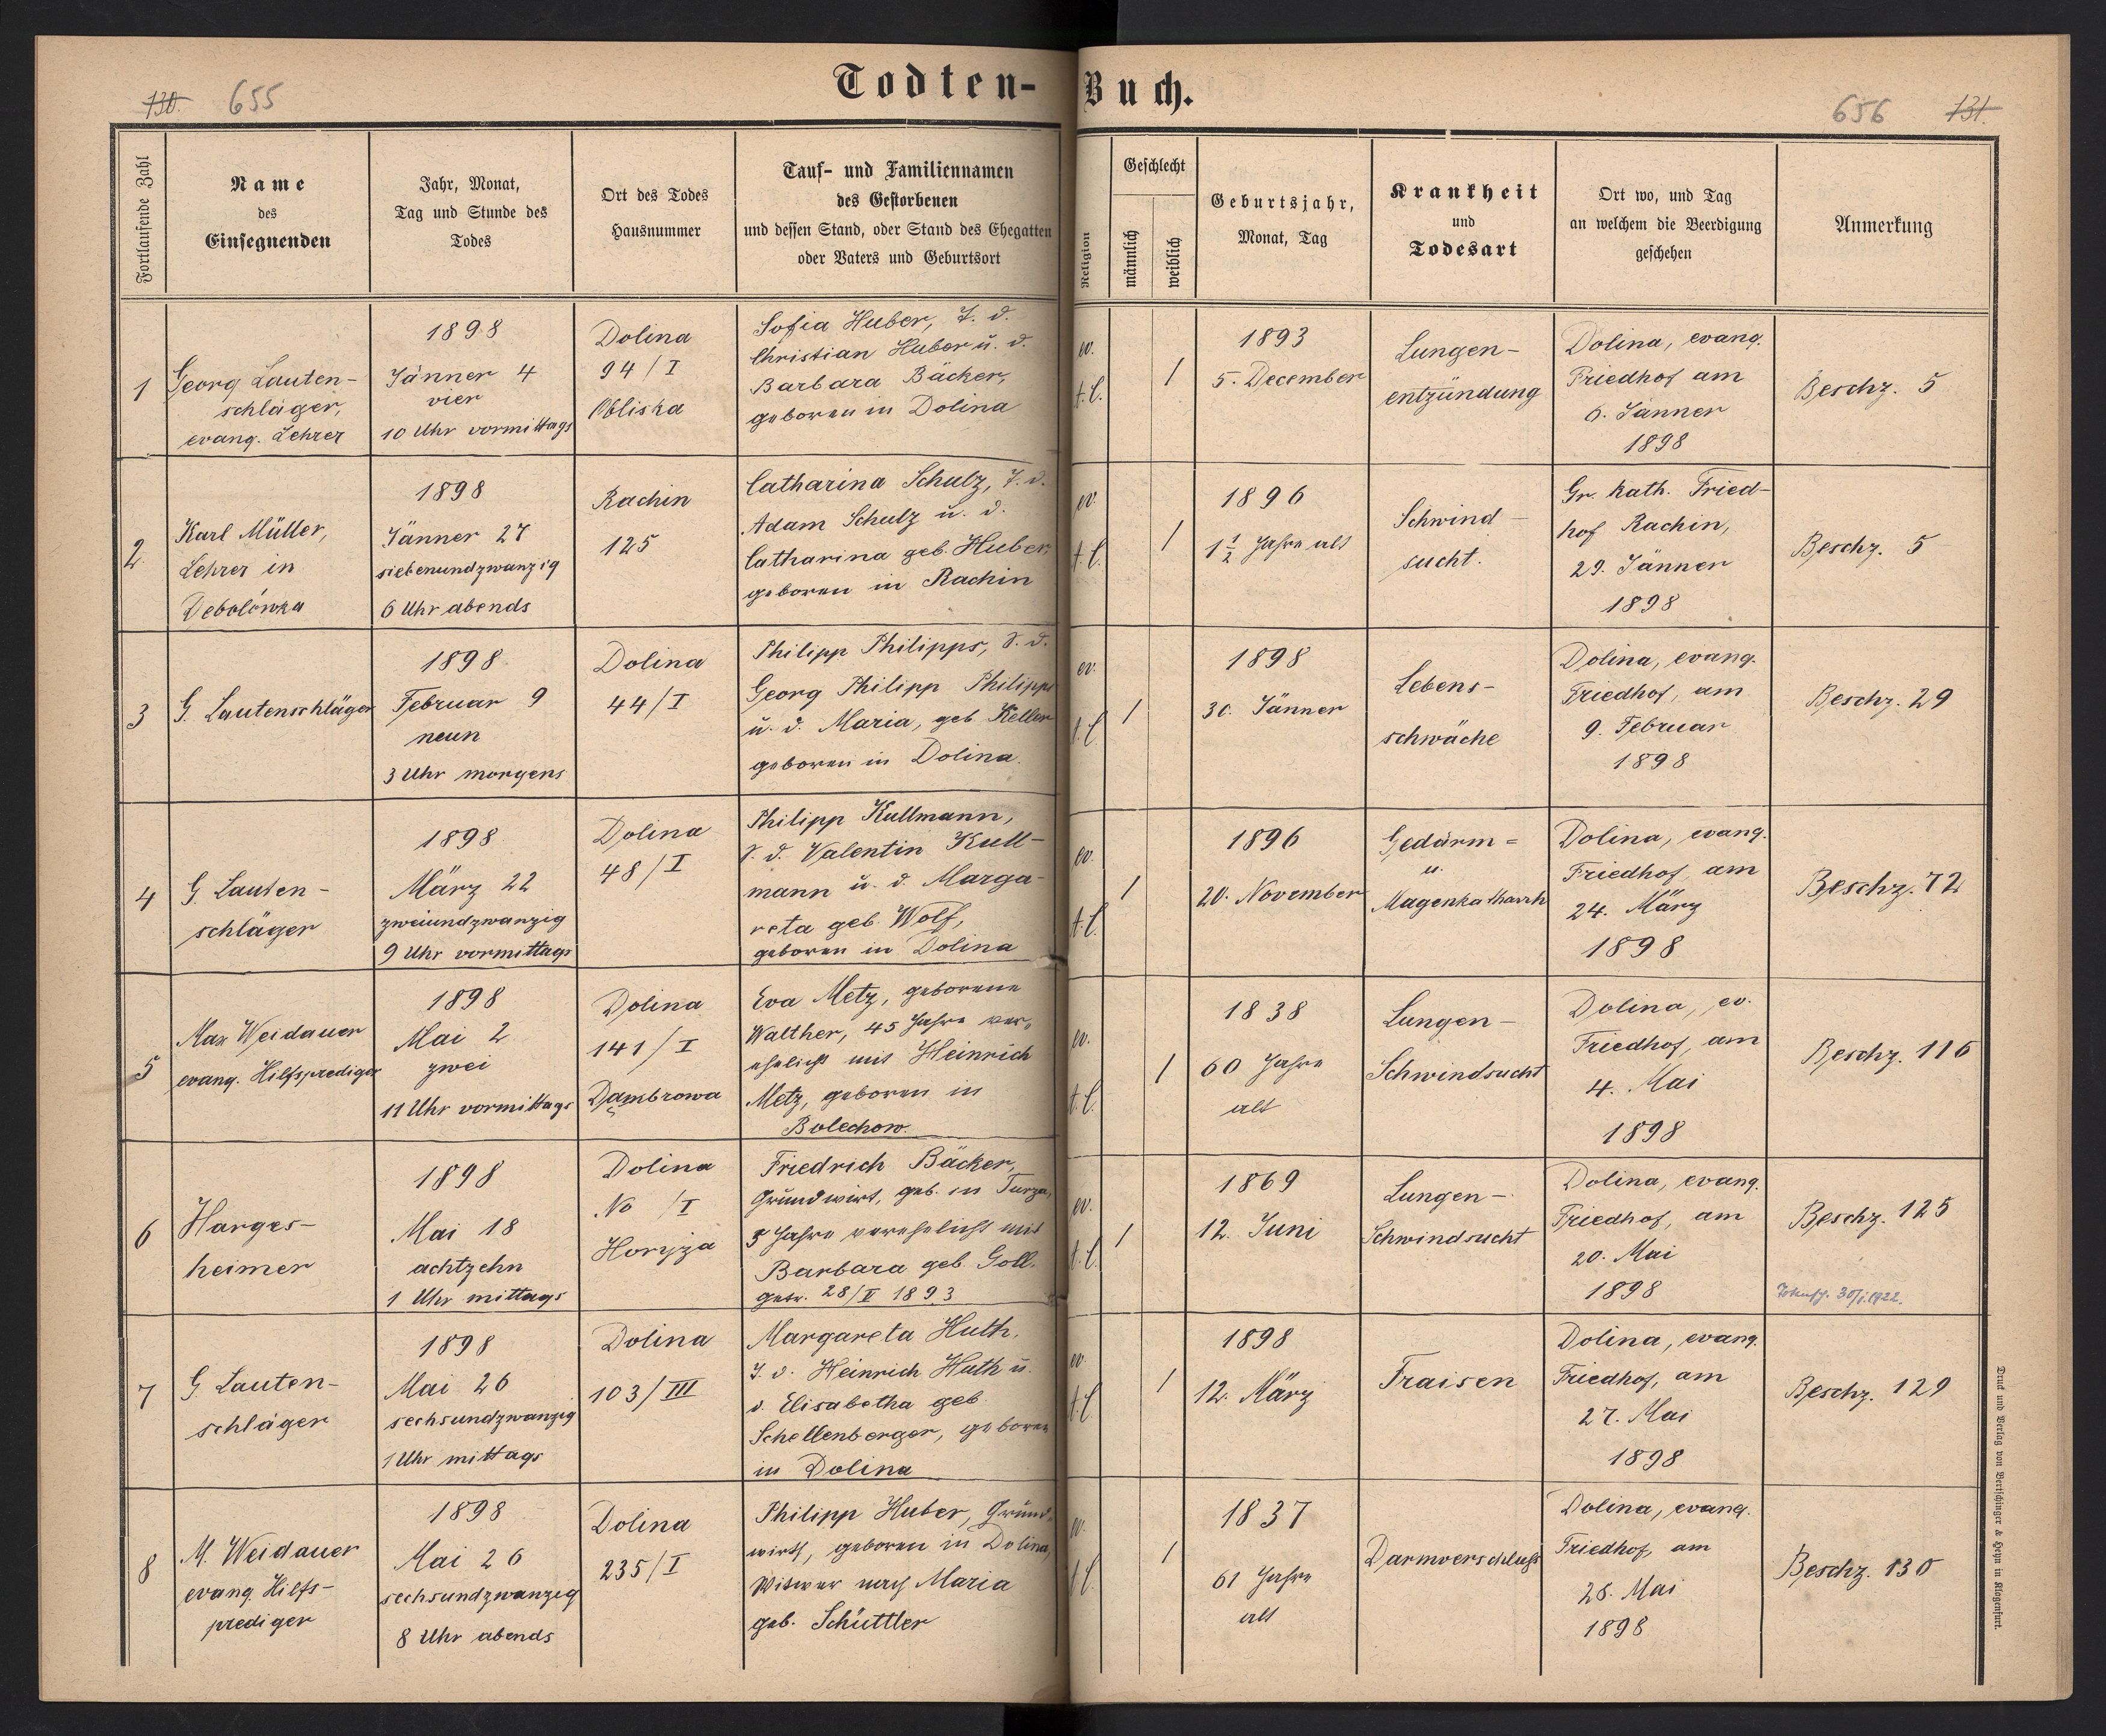 Todten-Buch.
130. 655
656 131.
Fortlaufende Zahl
Name
des
Einsegnenden
Jahr, Monat,
Tag und Stunde des
Todes
Ort des Todes
Hausnummer
Tauf- und Familiennamen
des Gestorbenen
und dessen Stand, oder Stand des Ehegatten
oder Vaters und Geburtsort
Religion
Geschlecht
männlich
weiblich
Geburtsjahr,
Monat, Tag
Krankheit
und
Todesart
Ort wo, und Tag
an welchem die Beerdigung
geschehen
Anmerkung
1
Georg Lauten-
schläger,
evang. Lehrer
1898
Jänner 4
vier
10 Uhr vormittags
Dolina
94/I
Obliska
Sofia Huber, T. d.
Christian Huber u. d.
Barbara Bäcker,
geboren in Dolina
ev.
1
1893
5. December
Lungen-
entzündung
Dolina, evang.
Friedhof am
6. Jänner
1898
Beschz. 5
2
Karl Müller,
Lehrer in
Debolówka
1898
Jänner 27
siebenundzwanzig
6 Uhr abends
Rachin
125
Catharina Schulz, T. d.
Adam Schulz u. d.
Catharina geb. Huber,
geboren in Rachin
ev.
1
1896
1½ Jahre alt
Schwind-
sucht.
Gr. kath. Fried-
hof Rachin,
29. Jänner
1898
Beschz. 5
3
G. Lautenschläger
1898
Februar 9
neun
3 Uhr morgens
Dolina
44/I
Philipp Philipps, S. d.
Georg Philipp Philipps
u. d. Maria, geb. Keller
geboren in Dolina.
ev.
1
1898
30. Jänner
Lebens-
schwäche
Dolina, evang.
Friedhof, am
9. Februar
1898
Beschz. 29
4
G. Lauten-
schläger
1898
März 22
zweiundzwanzig
9 Uhr vormittags
Dolina
48/I
Philipp Kullmann,
S. d. Valentin Kull-
mann u. d. Marga-
reta geb. Wolf,
geboren in Dolina
ev.
1
1896
20. November
Gedärm=
u.
Magenkatharrh
Dolina, evang.
Friedhof, am
24. März
1898
Beschz. 72
5
Max Weidauer
evang. Hilfsprediger
1898
Mai 2
zwei
11 Uhr vormittags
Dolina
141/I
Dąmbrowa
Eva Metz, geborene
Walther, 45 Jahre ver-
ehelicht mit Heinrich
Metz, geboren in
Bolechow.
ev.
1
1838
60 Jahre
alt
Lungen-
Schwindsucht
Dolina, ev.
Friedhof, am
4. Mai
1898
Beschz. 116
6
Harges-
heimer
1898
Mai 18
achtzehn
1 Uhr mittags
Dolina
No /I
Friedrich Bäcker,
Grundwirt, geb. in Turza,
5 Jahre verehelicht mit
Barbara geb. Goll.
getr. 28/II 1893
ev.
1
1869
12. Juni
Lungen-
Schwindsucht
Dolina, evang.
Friedhof, am
20. Mai
1898
Beschz. 125
1922.
7
G. Lauten-
schläger
1898
Mai 26
sechsundzwanzig
1 Uhr mittags
Dolina
103/III
Margareta Huth,
T. d. Heinrich Huth u.
d. Elisabetha geb.
Schellenberger, geboren
in Dolina
ev.
1
1898
12. März
Fraisen
Dolina, evang.
Friedhof, am
27. Mai
1898
Beschz. 129
8
M. Weidauer
evang. Hilfs-
prediger
1898
Mai 26
sechsundzwanzig
8 Uhr abends
Dolina
235/I
Philipp Huber, Grund-
wirth, geboren in Dolina,
Witwer nach Maria
geb. Schüttler
ev.
1
1837
61 Jahre
alt
Darmverschluß
Dolina, evang.
Friedhof, am
28. Mai
1898
Beschz. 130
Druck und Verlag von Bertschinger & Heyn in Klagenfurt.